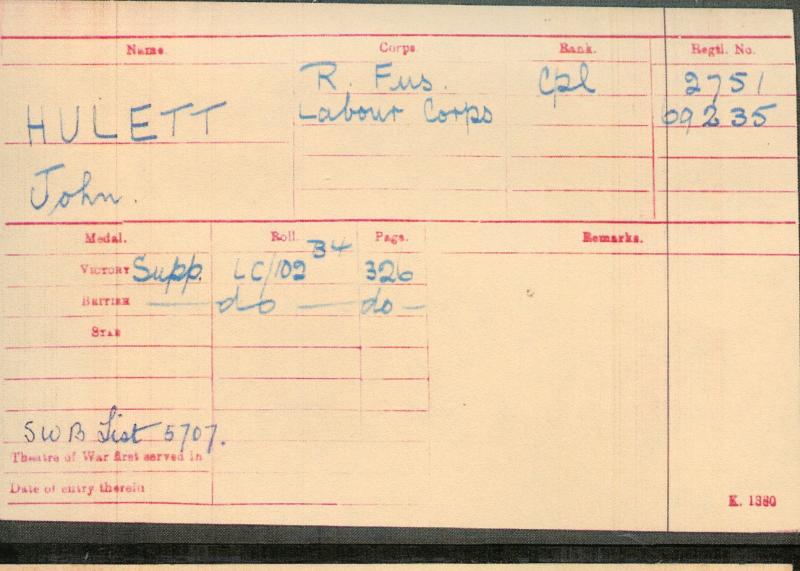 Name. Corps. Rank. Regtl. No.
R. Fus. Cpl 2751
HULETT Labour Corps 09235
John.
Medal. Roll. Page. Remarks.
B4
VICTORY Supp. LC/102 326
BRITISH — do — do —
STAR
SWB List 5707.
Theatre of War first served in
Date of entry therein
K. 1380